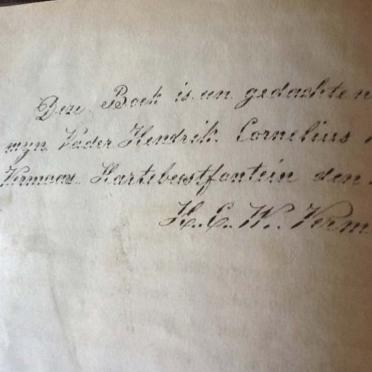 Deze Boek is an gedachten
myn Vader Hendrik Cornelius
Vermaas Hartebeestfontein den
H. C. W. Verm